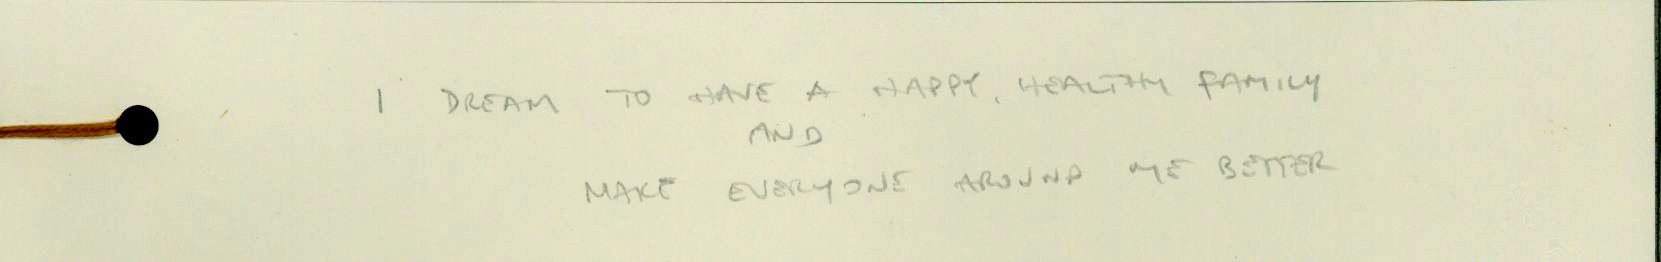 I DREAM TO HAVE A HAPPY, HEALTHY FAMILY
AND
MAKE EVERYONE AROUND ME BETTER